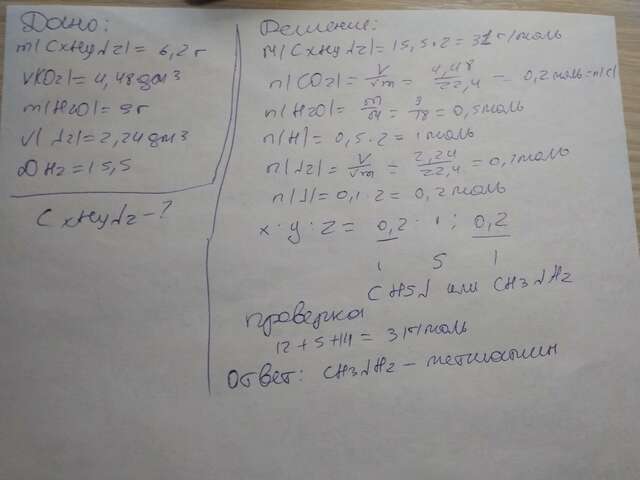 Дано:
m(CxHyNz) = 6,2 г
V(CO2) = 4,48 дм3
m(H2O) = 9 г
V(N2) = 2,24 дм3
DH2 = 15,5
CxHyNz - ?
Решение:
M(CxHyNz) = 15,5 · 2 = 31 г/моль
n(CO2) = V/Vm = 4,48/22,4 = 0,2 моль = n(C)
n(H2O) = m/M = 9/18 = 0,5 моль
n(H) = 0,5 · 2 = 1 моль
n(N2) = V/Vm = 2,24/22,4 = 0,1 моль
n(N) = 0,1 · 2 = 0,2 моль
x : y : z = 0,2 : 1 : 0,2
1 5 1
CH5N или CH3NH2
проверка
12 + 5 + 14 = 31 г/моль
Ответ: CH3NH2 - метиламин